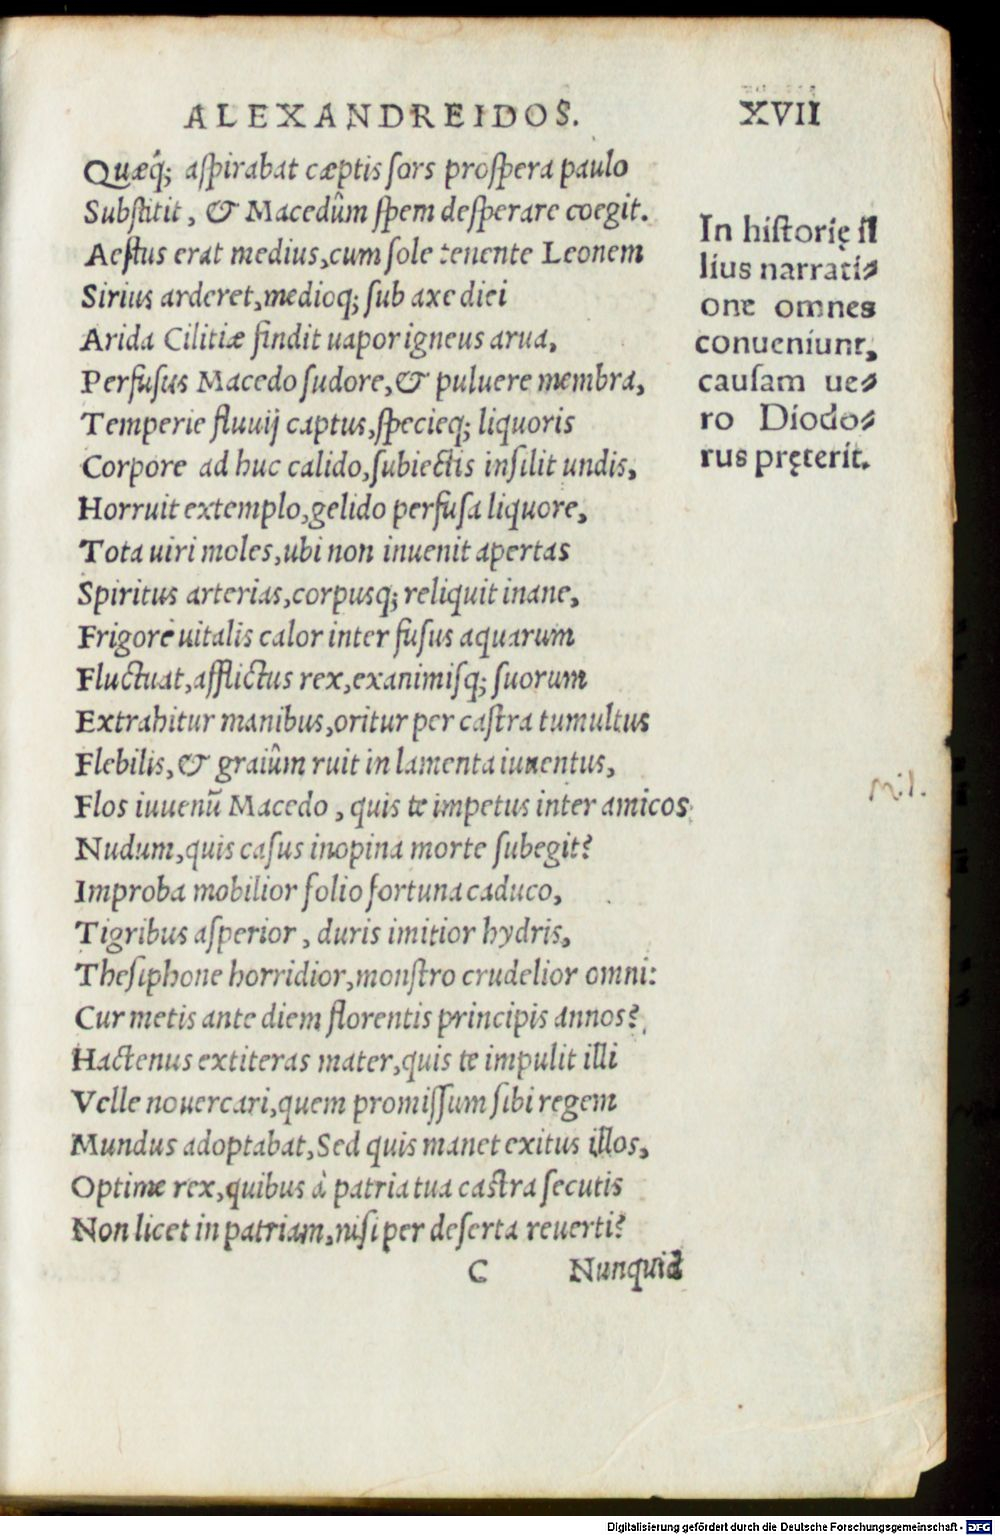 ALEXANDREIDOS. XVII
Quæq́; aſpirabat cæptis ſors proſpera paulo
Subſtitit, & Macedûm ſpem deſperare coegit.
Aeſtus erat medius,cum ſole tenente Leonem
Sirius arderet,medioq; ſub axe diei
Arida Cilitiæ findit uapor igneus arua,
Perfuſus Macedo ſudore,& puluere membra,
Temperie fluuij captus,ſpecieq; liquoris
Corpore ad huc calido,ſubiectis inſilit undis,
Horruit extemplo,gelido perfuſa liquore,
Tota uiri moles,ubi non inuenit apertas
Spiritus arterias,corpusq; reliquit inane,
Frigore uitalis calor inter fuſus aquarum
Fluctuat,afflictus rex,exanimiſq; ſuorum
Extrahitur manibus,oritur per caſtra tumultus
Flebilis,& graiûm ruit in lamenta iuuentus,
Flos iuuenū Macedo , quis te impetus inter amicos
Nudum,quis caſus inopina morte ſubegit?
Improba mobilior folio fortuna caduco,
Tigribus aſperior , duris imitior hydris,
Theſiphone horridior,monſtro crudelior omni:
Cur metis ante diem florentis principis annos?
Hactenus extiteras mater,quis te impulit illi
Velle nouercari,quem promiſſum ſibi regem
Mundus adoptabat,Sed quis manet exitus illos,
Optime rex,quibus à patria tua caſtra ſecutis
Non licet in patriam,niſi per deſerta reuerti?
C Nunquid
In hiſtorię il
lius narrati⸗
one omnes
conueniunt,
cauſam ue⸗
ro Diodo⸗
rus pręterit.
Digitalisierung gefördert durch die Deutsche Forschungsgemeinschaft - DFG